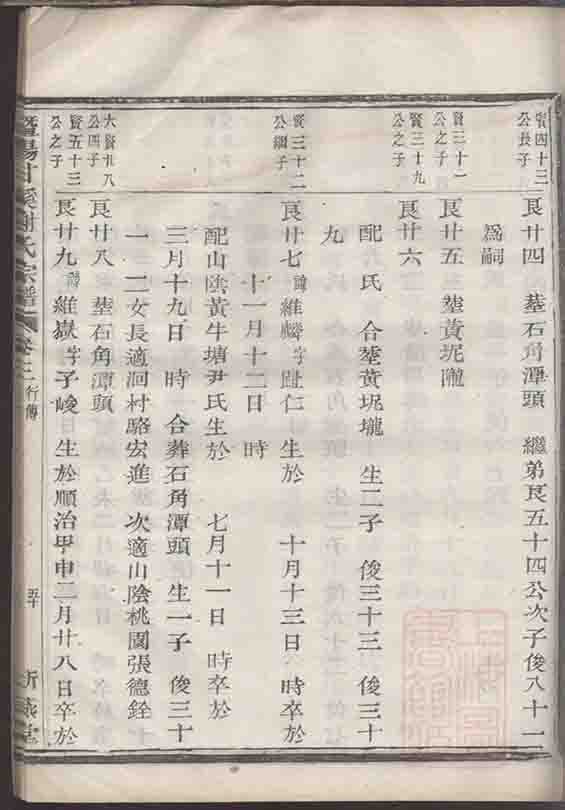 賢四十三
公長子
艮廿四 塟石角潭頭 繼弟艮五十四公次子俊八十一
為嗣
賢三十一
公之子
艮廿五 塟黃坭隴
賢三十九
公之子
艮廿六
配 氏 合塟黃坭壠 生二子 俊三十三 俊三十
九
賢三十二
公繼子
艮廿七 諱維麟 字趾仁 生於 十月十三日 時卒於
十一月十二日 時
配山陰黃牛塘尹氏生於 七月十一日 時卒於
三月十九日 時 合葬石角潭頭 生一子 俊三十
一 二女長適洄村駱宏進 次適山陰桃園張德銓
大賢廿八
公四子
艮廿八 塟石角潭頭
賢五十三
公之子
艮廿九 諱維嶽 字子峻 生於順治甲申二月廿八日卒於
暨陽甘溪謝氏宗譜 卷三 行傳 五十